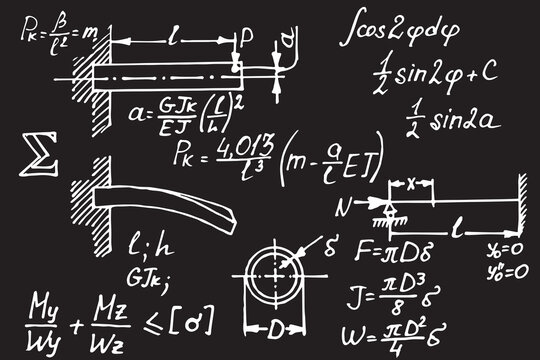 Pₖ = β/ℓ² = m
l
P
a
∫cos2φdφ
1/2 sin2φ + C
1/2 sin2a
a = GJₖ/EJ (l/h)²
Pₖ = 4,013/l³ (m - a/l EJ)
Σ
x
N
l
l; h
GJₖ;
δ
D
F = πDδ
y₀ = 0
y₀'' = 0
J = πD³/8 δ
W = πD²/4 δ
My/Wy + Mz/Wz ≤ [σ]